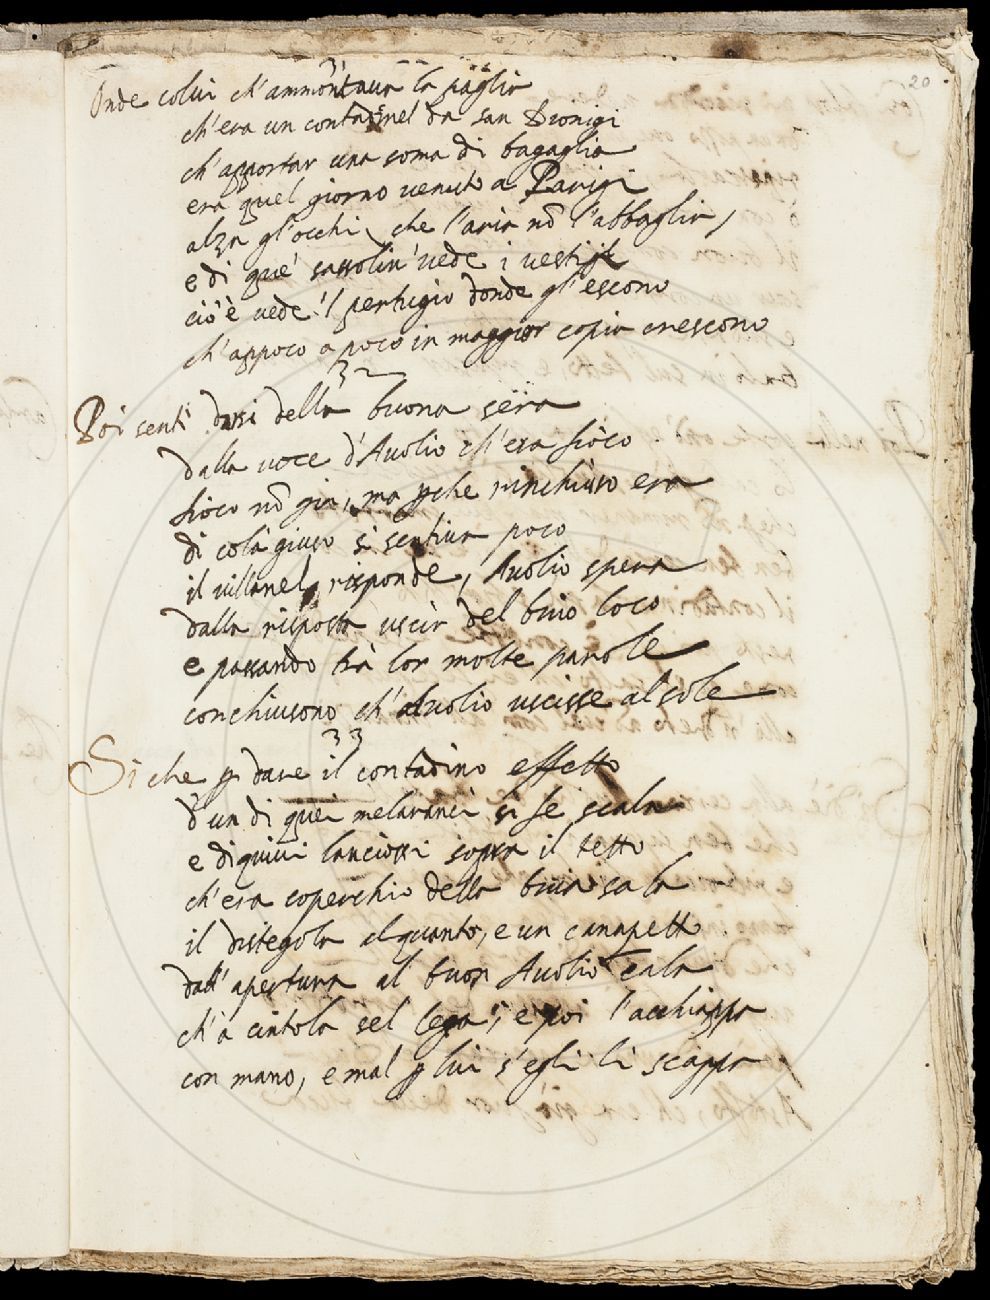 20
31
Onde colui ch'ammontaua la paglia
ch'era un contadinel da san Dionigi
ch'apportar una soma di bagaglia
era quel giorno uenuto a Parigi
alza gl'occhi, che l'aria nõ l'abbaglia,
e di que' sassolin' uede i uestigi
cio è uede 'l pertugio donde gl'escono
ch'appoco a poco in maggior copia crescono
32
Poi sentì darsi della buona sera
dalla uoce d'Auolio ch'era fioco
fioco nõ già, ma pche rinchiuso era
di colà giuso si sentiua poco
il uillanel risponde, Auolio spera
dalla risposta uscir del buio loco
e passando trà lor molte parole
conchiusono ch'Auolio uscisse al sole
33
Si che p dare il contadino effetto
d'un di quei melaranci si fe scala
e di quiui lanciossi sopra il tetto
ch'era coperchio della buia sala
il distegola alquanto, e un canapetto
dall'apertura al buon Auolio cala
ch'a cintola sel lega, e poi l'acchiappa
con mano, e mal p lui s'egli li scappa